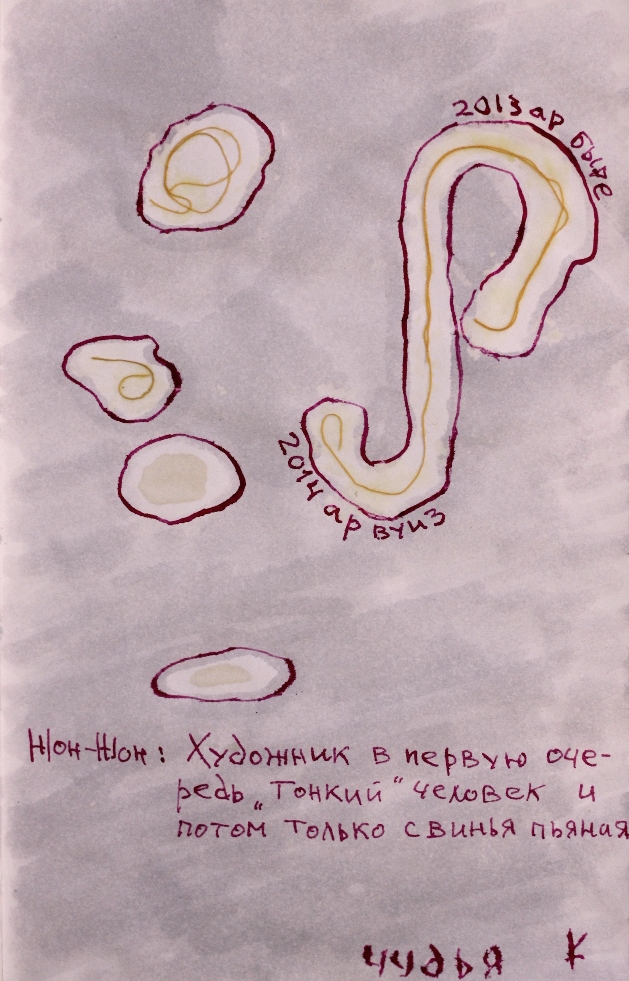 2013 ар быде
2014 ар вуиз
Жон-Жон: Художник в первую оче-
редь „Тонкий“ человек и
потом только свинья пьяная
чудья К